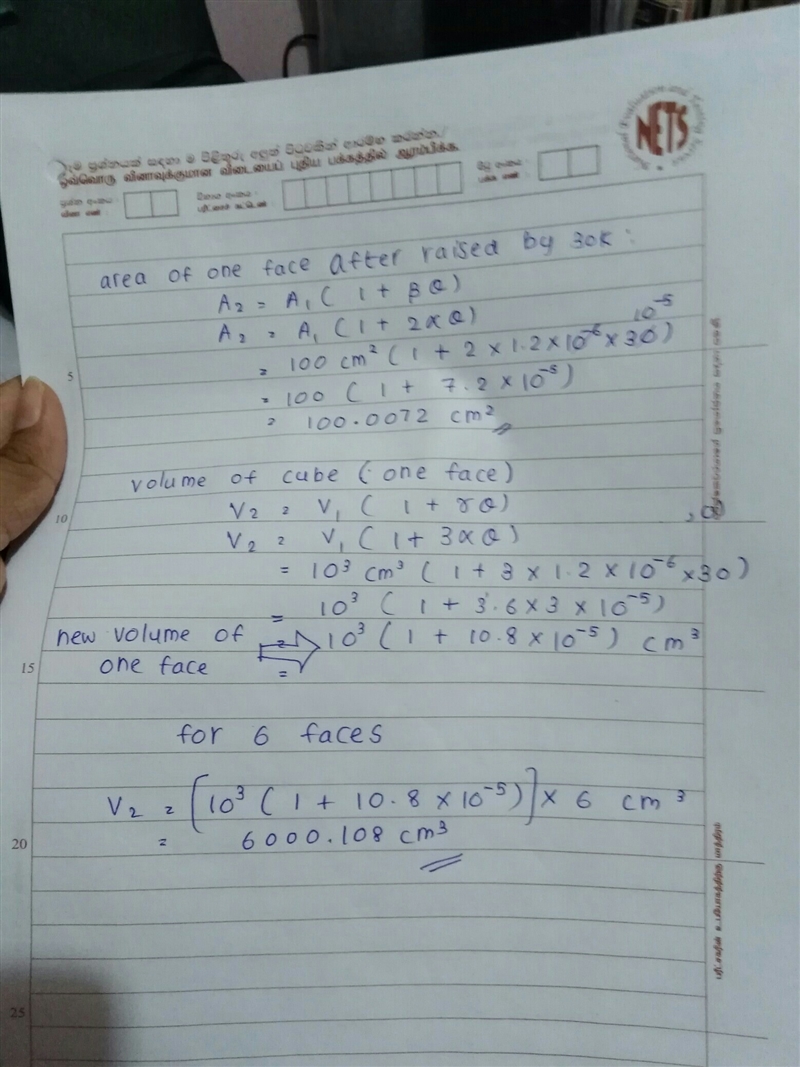 NETS
ஒவ்வொரு வினாவுக்குமான விடையைப் புதிய பக்கத்தில் ஆரம்பிக்க
area of one face after raised by 30K :
A2 = A1 ( 1 + βθ)
A2 = A1 (1 + 2αθ)
10^-5
= 100 cm² (1 + 2 × 1.2×10^-6 × 30)
5
= 100 ( 1 + 7.2 × 10^-5)
= 100.0072 cm²
volume of cube ( one face)
10
V2 = V1 ( 1 + γθ)
V2 = V1 ( 1 + 3αθ)
= 10³ cm³ ( 1 + 3 × 1.2 × 10^-6 ×30)
= 10³ ( 1 + 3.6 × 3 × 10^-5)
new volume of = 10³ ( 1 + 10.8 × 10^-5) cm³
15
one face =
for 6 faces
V2 = [10³ ( 1 + 10.8 × 10^-5)] × 6 cm³
20
= 6000.108 cm³
25